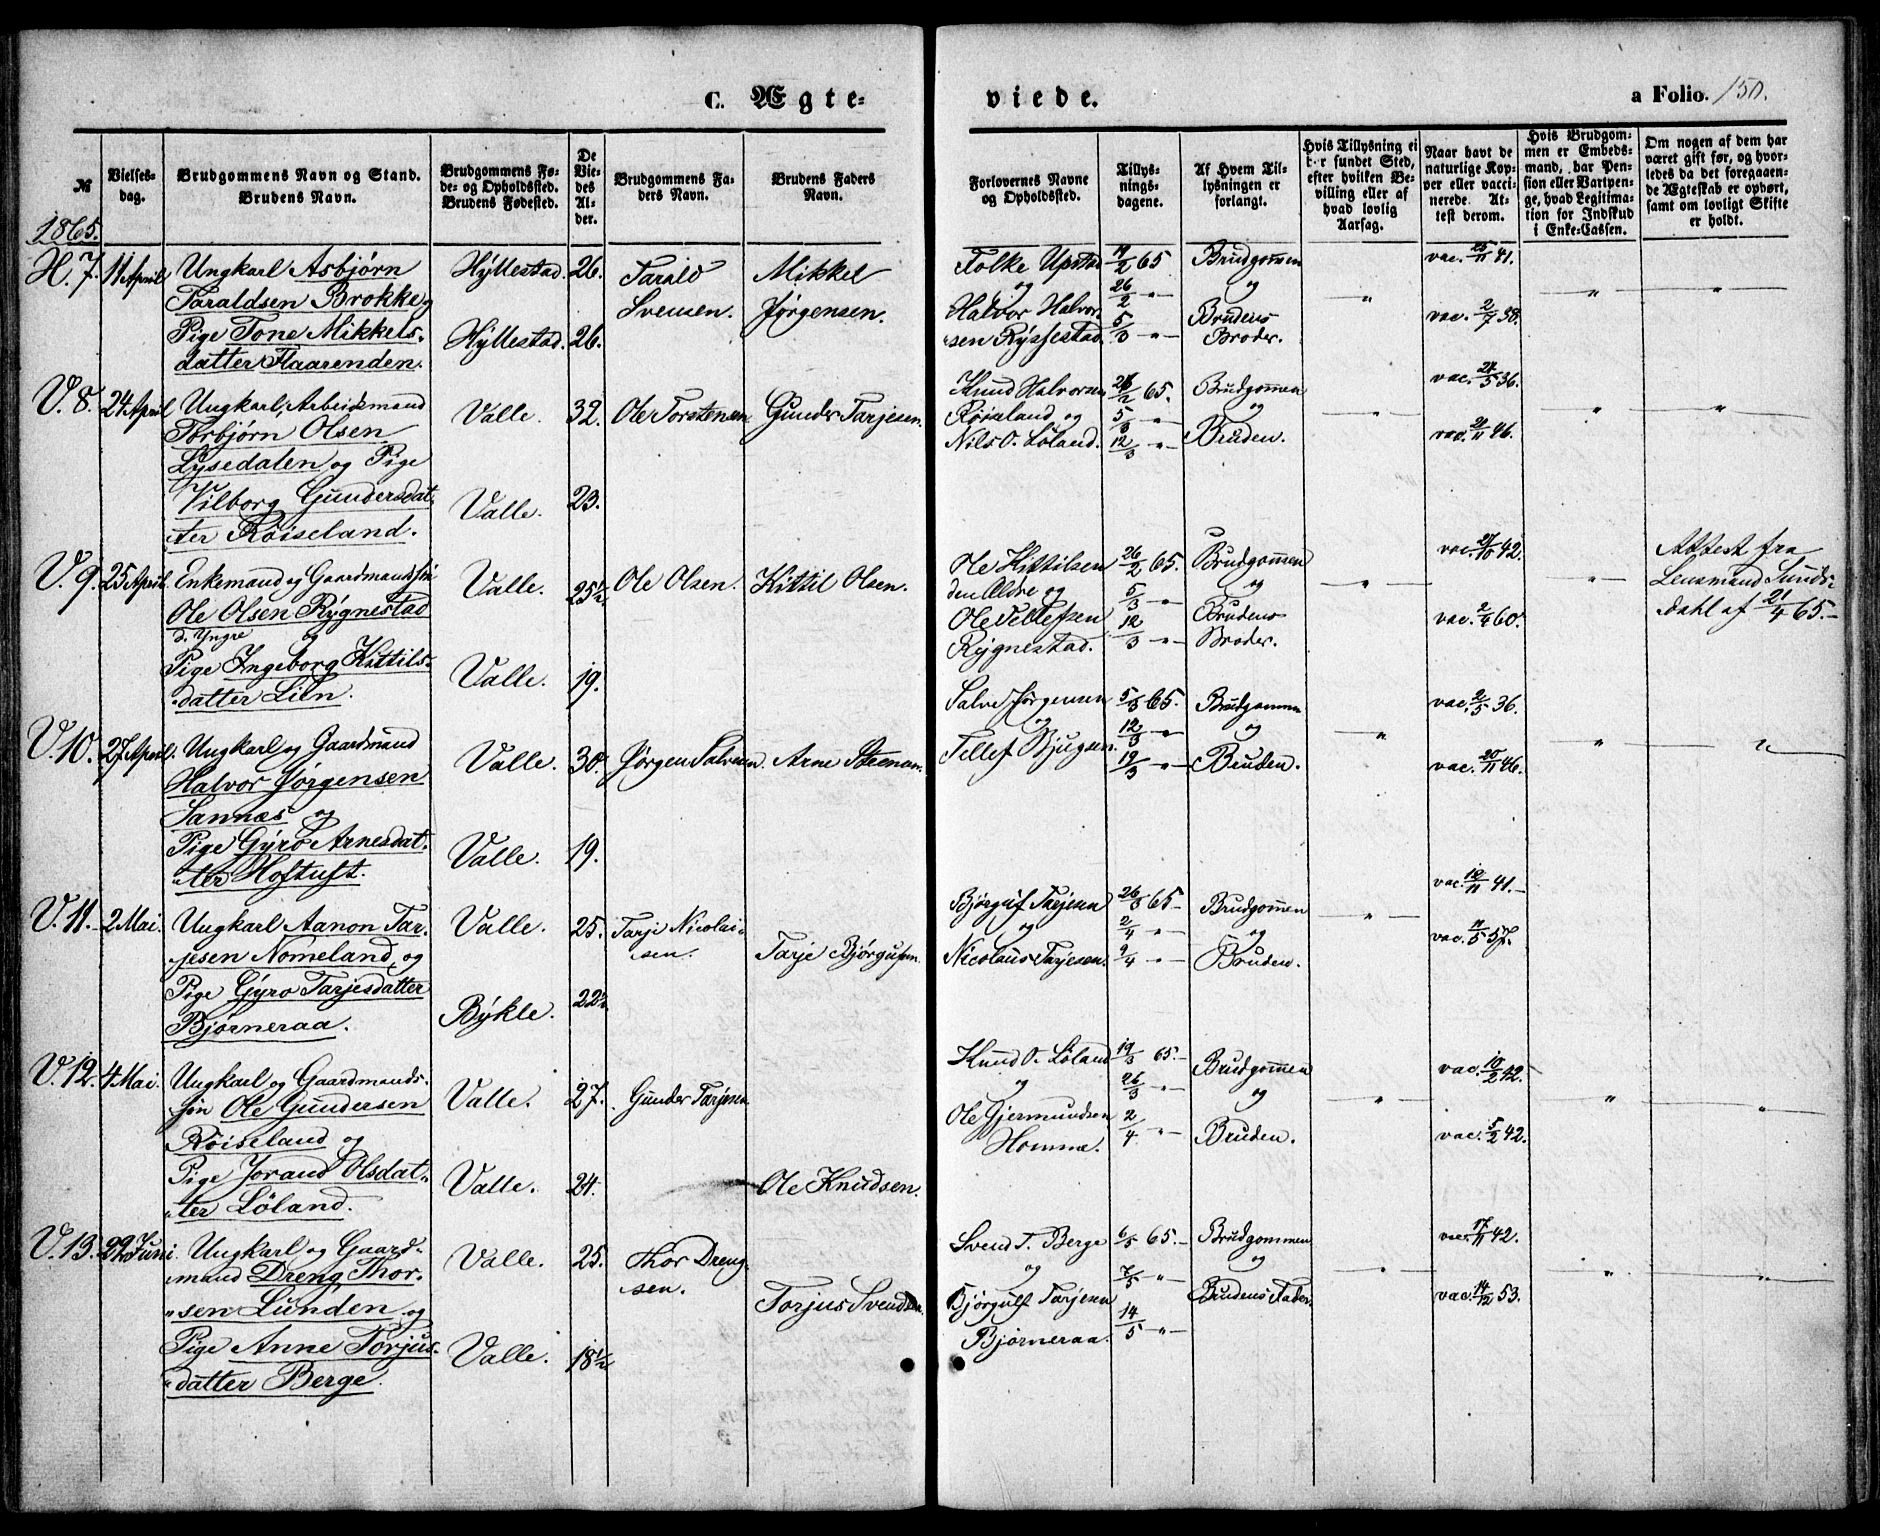 C. Ægte-
viede.
a Folio. 150.
№
Vielses-
dag.
Brudgommens Navn og Stand.
Brudens Navn.
Brudgommens Fø-
de- og Opholdssted.
Brudens Fødested.
De
Vie-
des
Al-
der.
Brudgommens Fa-
ders Navn.
Brudens Faders
Navn.
Forlovernes Navne
og Opholdssted.
Tillys-
nings-
dagene.
Af Hvem Til-
lysningen er
forlangt.
Hvis Tillysning ei
har fundet Sted,
efter hvilken Be-
villing eller af
hvad lovlig
Aarsag.
Naar havt de
naturlige Kop-
per eller vacci-
nerede. At-
test derom.
Hvis Brudgom-
men er Embeds-
mand, har Pen-
sion eller Vartpen-
ge, hvad Legitima-
tion for Indskud
i Enke-Cassen.
Om nogen af dem har
været gift før, og hvor-
ledes da det foregaaen-
de Ægteskab er ophørt,
samt om lovligt Skifte
er holdt.
1865.
H. 7. 11 April
Ungkarl Asbjørn
Taraldsen Brokke og
Pige Tone Mikkels-
datter Haarenden.
Hyllestad. 26.
Hyllestad. 26.
Tarald
Svensen.
Mikkel
Jørgensen.
Folke Upstad
og
Halvor Halvor-
sen Ryssestad.
19/2 65
26/2 "
5/3 "
Brudgommen
og
Brudens
Broder.
"
vac. 25/11 41.
vac. 2/7 38.
"
"
V. 8. 24 April
Ungkarl, Arbeidsmand
Torbjørn Olsen
Lysedalen og Pige
Vilborg Gundersdat-
ter Røiseland.
Valle. 32.
Valle. 23.
Ole Torstensen
Gunder Tarjesen.
Knud Halvorsen
Røiseland og
Nils O. Løland.
26/2 65.
5/3 "
12/3 "
Brudgommen
og
Bruden.
"
vac. 27/5 36.
vac. 21/11 46.
"
"
V. 9. 25 April.
Enkemand og Gaardmandssøn
Ole Olsen Rygnestad
d. Yngre og
Pige Ingeborg Kittils-
datter Lien.
Valle. 25½.
Valle. 19.
Ole Olsen.
Kittil Olsen.
Ole Kittilsen
den Ældre og
Ole Tellefsen
Rygnestad.
26/2 65.
5/3 "
12/3 "
Brudgommen
og
Brudens
Broder.
"
vac. 27/10 42.
vac. 2/4 60.
"
Attest fra
Lensmand Sunds-
dahl af 21/4 65.
V. 10. 27 April.
Ungkarl og Gaardmand
Halvor Jørgensen
Sannæs og
Pige Gyro Arnesdat-
ter Hoftuft.
Valle. 30.
Valle. 19.
Jørgen Salvesen.
Arne
Salve Jørgensen
og
Tellef Bjugsen.
5/3 65.
12/3 "
19/3 "
Brudgommen
og
Bruden.
"
vac. 2/5 36.
vac. 20/11 46.
"
"
V. 11. 2 Mai.
Ungkarl Aanon Tar-
jesen Nomeland, og
Pige Gyro Tarjesdatter
Bjørneraa.
Valle. 25.
Bykle. 22½
Tarje Nicolai-
sen.
Tarje Bjørgufsen
Bjørguf Tarjesen
og
Nicolaus Tarjesen.
26/3 65
2/4 "
9/4 "
Brudgommen
og
Bruden.
"
vac. 10/11 41.
vac. 11/5 57.
V. 12. 4 Mai.
Ungkarl og Gaardmands-
søn Ole Gundersen
Røiseland og
Pige Jorand Olsdat-
ter Løland.
Valle. 27.
Valle. 24.
Gunder Tarjesen
Ole Knudsen.
Knud O. Løland
og
Ole Gjermundsen
Homme.
19/3 65.
26/3 "
2/4 "
Brudgommen
og
Bruden.
"
vac. 10/2 42.
vac. 5/2 42.
"
"
V. 13. 22 Juni.
Ungkarl og Gaard-
mand Dreng Thor-
sen Lunden og
Pige Anne Torjus-
datter Berge.
Valle. 25.
Valle. 18½
Thor Dreng-
sen.
Torjus Svendsen.
Svend T. Berge
og
Bjørgulf Tarjesen
Bjørneraa.
6/5 65.
7/5 "
14/5 "
Brudgommen
og
Brudens Fader.
"
vac. 17/11 42.
vac. 14/12 53.
"
"